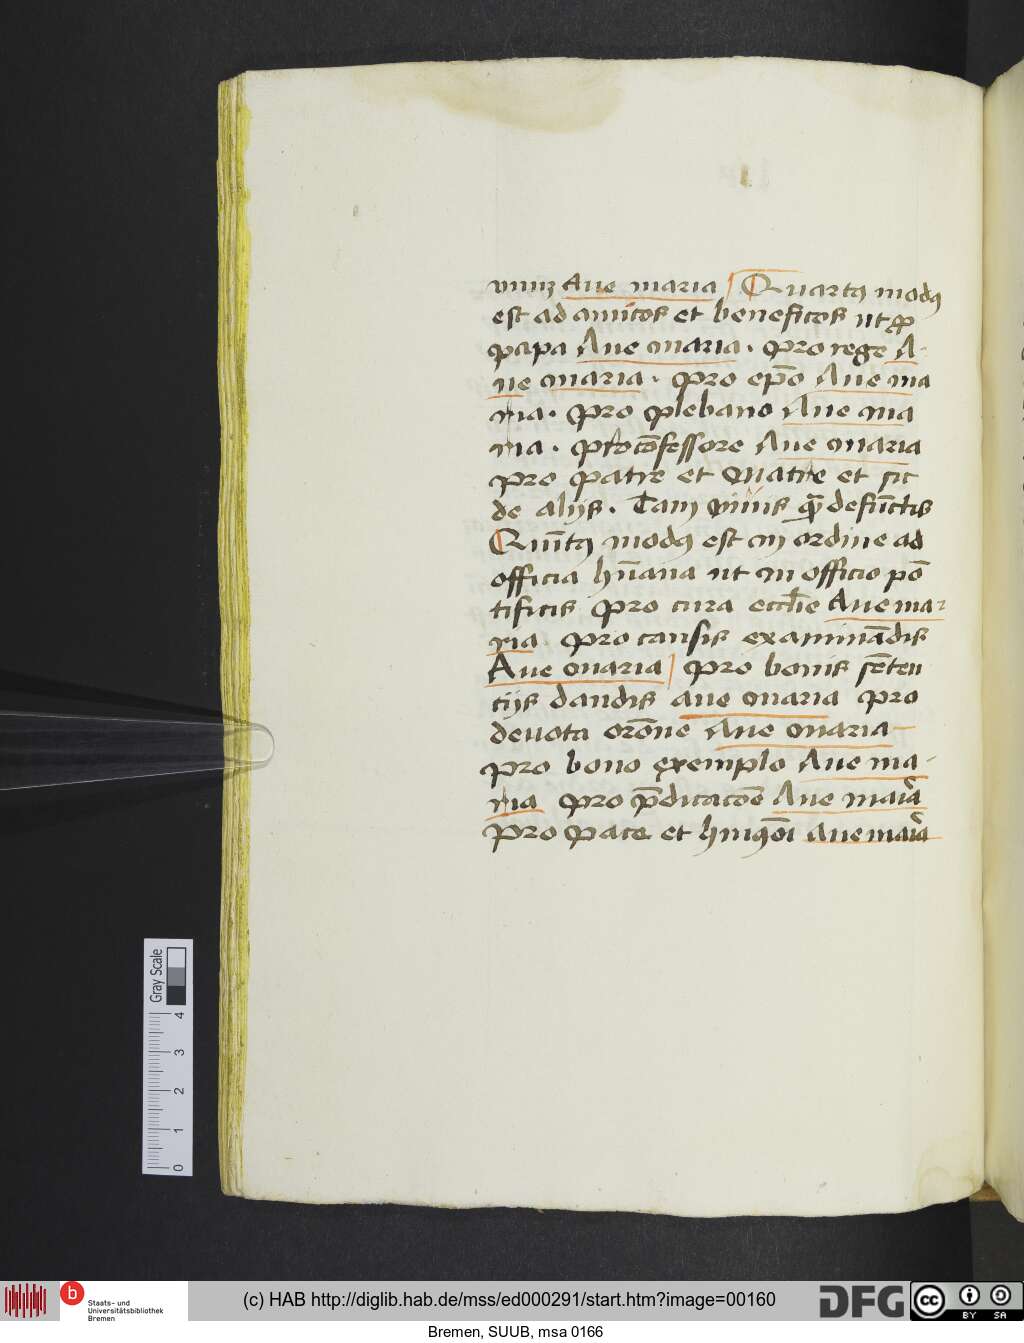 vnuꝫ Aue maria Quartꝯ modꝯ
est ad amicos et beneficos ut ꝓ
papa Aue maria. Pro rege A-
ue maria. Pro ep̄o Aue ma
ria. Pro plebano Aue ma
ria. Pro cōfessore Aue maria
pro patre et Matre et sic
de alijs. Tam viuis qꝫ̄ defūctis
Quītꝯ modꝯ est in ordine ad
officia hūana ut in officio pō
tificis pro cura eccl̄ie Aue ma-
ria pro causis examinādis
Aue maria pro bonis sētен
tijs dandis aue maria pro
deuota orōne Aue maria
pro bono exemplo Aue ma-
ria pro p̄dicacōe Aue maīa
pro pace et Aue maīa
Gray Scale
0 1 2 3 4
b
Staats- und
Universitätsbibliothek
Bremen
(c) HAB http://diglib.hab.de/mss/ed000291/start.htm?image=00160
DFG
cc BY SA
Bremen, SUUB, msa 0166